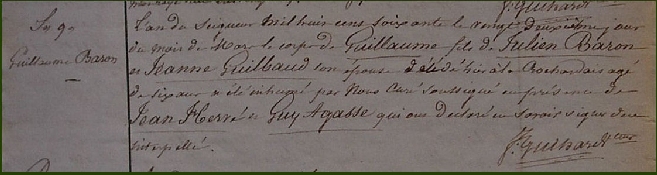 J. Guihard
L'an du Seigneur mil huit cens soixante le vingt deuxième jour
Guillaume Baron
du mois de Mars le corps de Guillaume fils de Julien Baron
et Jeanne Guilbaud son épouse décédé hier à la Rochardais agé
de six ans a été inhumé par Nous Curé soussigné en présence de
Jean Hervé et Guy Agasse qui ont déclaré ne savoir signer de ce
interpellé.
J. Guihard